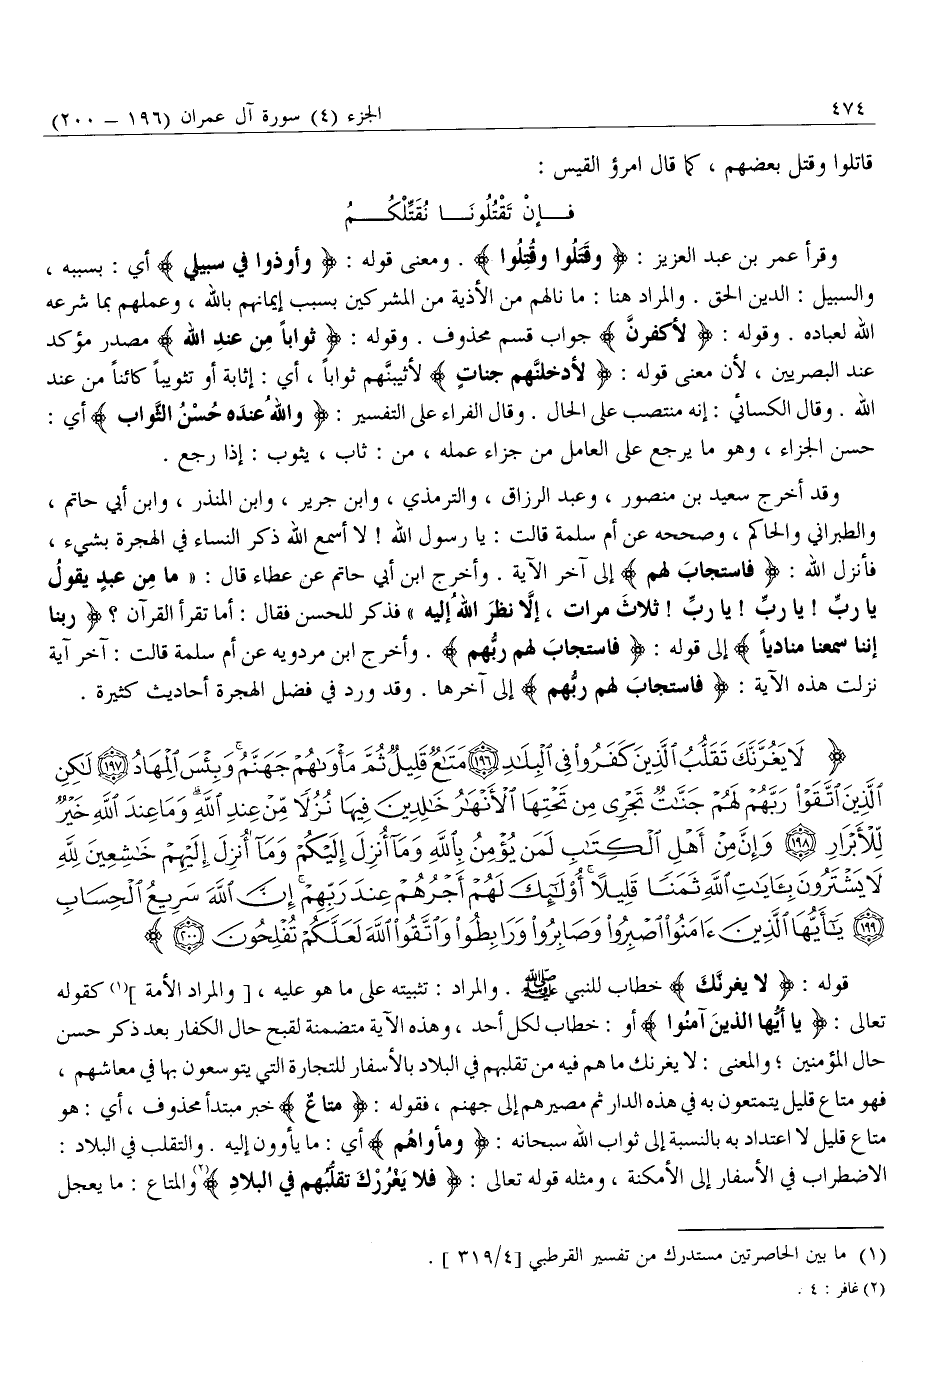 ٤٧٤
الجزء (٤) سورة آل عمران (١٩٦ – ٢٠٠)
قاتلوا وقتل بعضهم ، كما قال امرؤ القيس :
فــإنْ تَقْتُلُونَــا نُقَتِّلْكُـــمُ
وقرأ عمر بن عبد العزيز : ﴿ وقَتَلُوا وقُتِلُوا ﴾ . ومعنى قوله : ﴿ وأوذوا في سبيلي ﴾ أي : بسببه ،
والسبيل : الدين الحق . والمراد هنا : ما نالهم من الأذية من المشركين بسبب إيمانهم بالله ، وعملهم بما شرعه
الله لعباده . وقوله : ﴿ لأكفرنَّ ﴾ جواب قسم محذوف . وقوله : ﴿ ثواباً مِن عندِ الله ﴾ مصدر مؤكد
عند البصريين ، لأن معنى قوله : ﴿ لأدخلنَّهم جناتٍ ﴾ لأثيبنَّهم ثواباً ، أي : إثابة أو تثويباً كائناً من عند
الله . وقال الكسائي : إنه منتصب على الحال . وقال الفراء على التفسير : ﴿ واللهُ عندَه حُسْنُ الثَّواب ﴾ أي :
حسن الجزاء ، وهو ما يرجع على العامل من جزاء عمله ، من : ثاب ، يثوب : إذا رجع .
وقد أخرج سعيد بن منصور ، وعبد الرزاق ، والترمذي ، وابن جرير ، وابن المنذر ، وابن أبي حاتم ،
والطبراني والحاكم ، وصححه عن أم سلمة قالت : يا رسول الله ! لا أسمع الله ذكر النساء في الهجرة بشيء ،
فأنزل الله : ﴿ فاستجابَ لهم ﴾ إلى آخر الآية . وأخرج ابن أبي حاتم عن عطاء قال : « ما مِن عبدٍ يقولُ
يا ربِّ ! يا ربِّ ! يا ربِّ ! ثلاثَ مرات ، إلَّا نظرَ اللهُ إليه » فذكر للحسن فقال : أما تقرأ القرآن ؟ ﴿ ربنا
إننا سمعنا منادياً ﴾ إلى قوله : ﴿ فاستجابَ لهم ربُّهم ﴾ . وأخرج ابن مردويه عن أم سلمة قالت : آخر آية
نزلت هذه الآية : ﴿ فاستجابَ لهم ربُّهم ﴾ إلى آخرها . وقد ورد في فضل الهجرة أحاديث كثيرة .
﴿ لَا يَغُرَّنَّكَ تَقَلُّبُ ٱلَّذِينَ كَفَرُوا۟ فِى ٱلْبِلَـٰدِ ١٩٦ مَتَـٰعٌ قَلِيلٌ ثُمَّ مَأْوَىٰهُمْ جَهَنَّمُ ۚ وَبِئْسَ ٱلْمِهَادُ ١٩٧ لَـٰكِنِ
ٱلَّذِينَ ٱتَّقَوْا۟ رَبَّهُمْ لَهُمْ جَنَّـٰتٌ تَجْرِى مِن تَحْتِهَا ٱلْأَنْهَـٰرُ خَـٰلِدِينَ فِيهَا نُزُلًا مِّنْ عِندِ ٱللَّهِ ۗ وَمَا عِندَ ٱللَّهِ خَيْرٌ
لِّلْأَبْرَارِ ١٩٨ وَإِنَّ مِنْ أَهْلِ ٱلْكِتَـٰبِ لَمَن يُؤْمِنُ بِٱللَّهِ وَمَآ أُنزِلَ إِلَيْكُمْ وَمَآ أُنزِلَ إِلَيْهِمْ خَـٰشِعِينَ لِلَّهِ
لَا يَشْتَرُونَ بِـَٔايَـٰتِ ٱللَّهِ ثَمَنًا قَلِيلًا ۗ أُو۟لَـٰٓئِكَ لَهُمْ أَجْرُهُمْ عِندَ رَبِّهِمْ ۗ إِنَّ ٱللَّهَ سَرِيعُ ٱلْحِسَابِ
١٩٩ يَـٰٓأَيُّهَا ٱلَّذِينَ ءَامَنُوا۟ ٱصْبِرُوا۟ وَصَابِرُوا۟ وَرَابِطُوا۟ وَٱتَّقُوا۟ ٱللَّهَ لَعَلَّكُمْ تُفْلِحُونَ ٢٠٠ ﴾
قوله : ﴿ لا يغرنَّك ﴾ خطاب للنبي ﷺ . والمراد : تثبيته على ما هو عليه ، [ والمراد الأمة ](١) كقوله
تعالى : ﴿ يا أيُّها الذينَ آمنُوا ﴾ أو : خطاب لكل أحد ، وهذه الآية متضمنة لقبح حال الكفار بعد ذكر حسن
حال المؤمنين ؛ والمعنى : لا يغرنك ما هم فيه من تقلبهم في البلاد بالأسفار للتجارة التي يتوسعون بها في معاشهم ،
فهو متاع قليل يتمتعون به في هذه الدار ثم مصيرهم إلى جهنم ، فقوله : ﴿ متاعٌ ﴾ خبر مبتدأ محذوف ، أي : هو
متاع قليل لا اعتداد به بالنسبة إلى ثواب الله سبحانه : ﴿ ومأواهُم ﴾ أي : ما يأوون إليه . والتقلب في البلاد :
الاضطراب في الأسفار إلى الأمكنة ، ومثله قوله تعالى : ﴿ فلا يَغْرُرْكَ تقلُّبُهم في البلادِ ﴾(٢) والمتاع : ما يعجل
(١) ما بين الحاصرتين مستدرك من تفسير القرطبي [ ٣١٩/٤ ] .
(٢) غافر : ٤ .